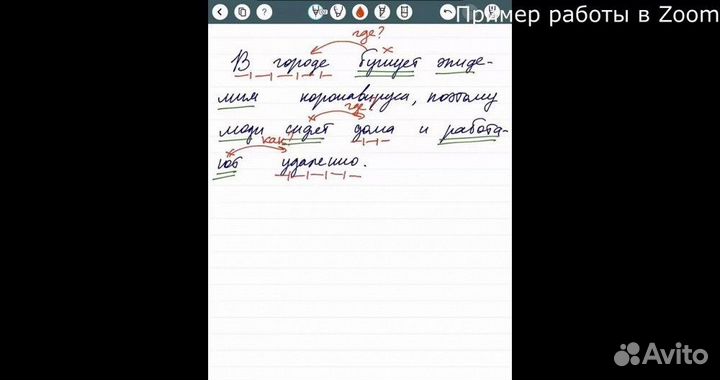 Пример работы в Zoom
где?
В городе бушует эпиде-
мия коронавируса, поэтому
где
люди сидят дома и работа-
как
ют удаленно.
Avito